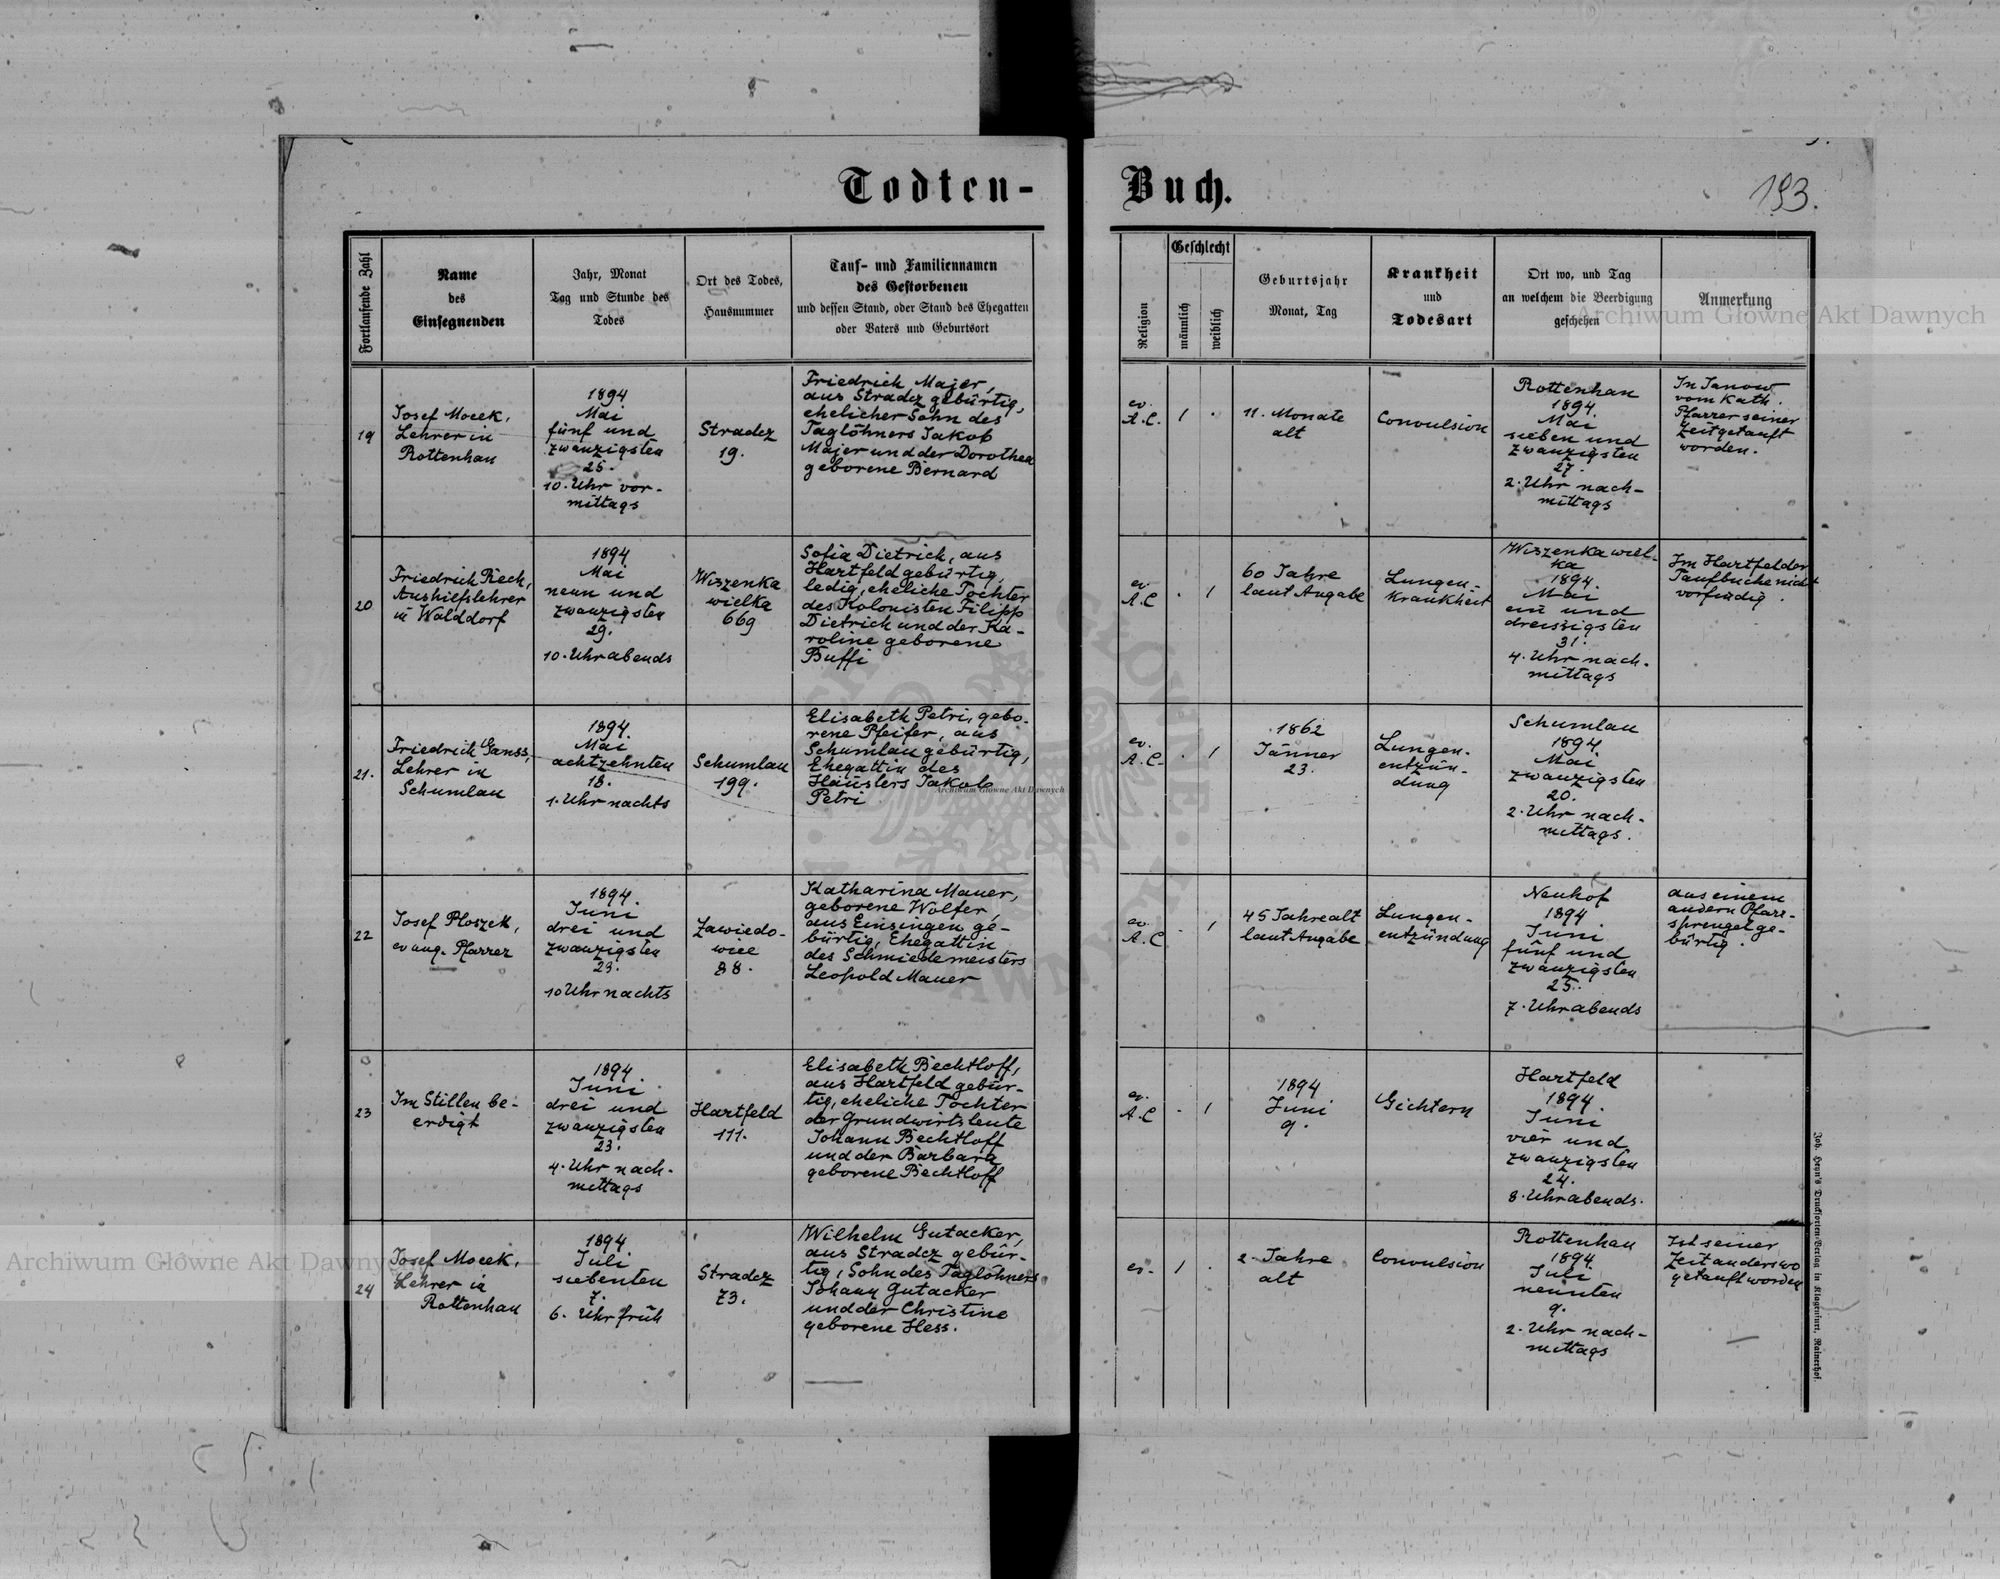 Todten-Buch.
193.
Fortlaufende Zahl
Name
des
Einsegnenden
Jahr, Monat
Tag und Stunde des
Todes
Ort des Todes,
Hausnummer
Tauf- und Familiennamen
des Gestorbenen
und dessen Stand, oder Stand des Ehegatten
oder Vaters und Geburtsort
Religion
Geschlecht
männlich
weiblich
Geburtsjahr
Monat, Tag
Krankheit
und
Todesart
Ort wo, und Tag
an welchem die Beerdigung
geschehen
Anmerkung
19
Josef Mocek,
Lehrer in
Rottenhan
1894
Mai
fünf und
zwanzigsten
25.
10. Uhr vor-
mittags
Stradcz
19.
Friedrich Majer,
aus Stradcz gebürtig,
ehelicher Sohn des
Taglöhners Jakob
Majer und der Dorothea
geborene Bernard
ev.
A.C.
1
.
11. Monate
alt
Convulsion
Rottenhan
1894.
Mai
sieben und
zwanzigsten
27.
2. Uhr nach-
mittags
In Janow
vom Kath.
Pfarrer seiner
Zeit getauft
worden.
20
Friedrich Rech,
Aushilfslehrer
in Walddorf
1894
Mai
neun und
zwanzigsten
29.
10. Uhr abends
Wiszenka
wielka
669
Sofia Dietrich, aus
Hartfeld gebürtig,
ledig, eheliche Tochter
des Kolonisten Filipp
Dietrich und der Ka-
roline geborene
Buffi
ev.
A.C
.
1
60 Jahre
laut Angabe
Lungen-
krankheit
Wiszenka wiel-
ka
1894.
Mai
ein und
dreissigsten
31.
4. Uhr nach-
mittags
Im Hartfelder
Taufbuche nicht
vorfindig.
21.
Friedrich Ganss,
Lehrer in
Schumlau
1894.
Mai
achtzehnten
18.
1. Uhr nachts
Schumlau
199.
Elisabeth Petri, gebo-
rene Pfeifer, aus
Schumlau gebürtig,
Ehegattin des
Häuslers Jakob
Petri
ev.
A.C.
.
1
1862
Jänner
23.
Lungen-
entzün-
dung
Schumlau
1894.
Mai
zwanzigsten
20.
2. Uhr nach-
mittags.
22
Josef Ploszek,
evang. Pfarrer
1894.
Juni
drei und
zwanzigsten
23.
10 Uhr nachts
Zawiedo-
wice
88.
Katharina Mauer,
geborene Wolfer,
aus Einsingen ge-
bürtig, Ehegattin
des Schmiedemeisters
Leopold Mauer
ev.
A.C
.
1
45 Jahre alt
laut Angabe
Lungen-
entzündung
Neuhof
1894
Juni
fünf und
zwanzigsten
25.
7. Uhr abends
aus einem
andern Pfarr-
sprengel ge-
bürtig.
23
Im Stillen be-
erdigt
1894
Juni
drei und
zwanzigsten
23.
4. Uhr nach-
mittags
Hartfeld
111.
Elisabeth Bechtloff,
aus Hartfeld gebür-
tig, eheliche Tochter
der Grundwirtsleute
Johann Bechtloff
und der Barbara
geborene Bechtloff
ev.
A.C
.
1
1894
Juni
9.
Gichtern
Hartfeld
1894.
Juni
vier und
zwanzigsten
24.
8. Uhr abends.
24
Josef Mocek,
Lehrer in
Rottenhan
1894
Juli
siebenten
7.
6. Uhr früh
Stradcz
73.
Wilhelm Gutacker,
aus Stradcz gebür-
tig, Sohn des Taglöhners
Johann Gutacker
und der Christine
geborene Hess.
ev.
1
.
2 Jahre
alt
Convulsion
Rottenhan
1894.
Juli
neunten
9.
2. Uhr nach-
mittags
Ist seiner
Zeit anderswo
getauft worden
Joh. Heyn's Drucksorten-Verlag in Klagenfurt, Rainerhof.
Archiwum Główne Akt Dawnych
Archiwum Główne Akt Dawnych
Archiwum Główne Akt Dawnych